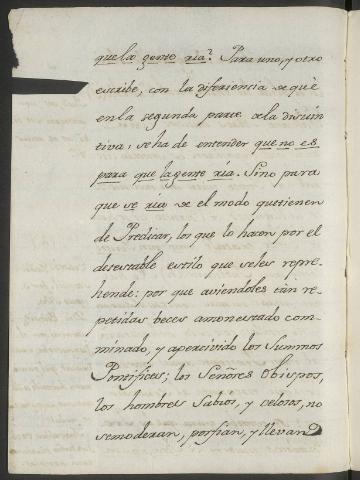 que la gente ria? Para uno, y otro
escribe, con la diferencia de què
en la segunda parte de la disiun
tiva, se ha de entender que no es
para que la gente ria. Sino para
que se ria de el modo que tienen
de Predicar, los que lo hacen por el
detestable estilo que seles repre-
hende: por que aviendoles tan re-
petidas veces amonestado com-
minado, y apercivido los Summos
Pontifices; los Señores Obispos,
los hombres Sabios, y celosos, no
se moderan, porfian, y llevan